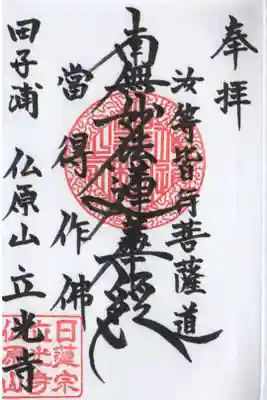 奉拝
汝等皆行菩薩道
南無妙法蓮華経
當得作佛
田子浦 仏原山 立光寺
日蓮宗
立光寺
仏原山